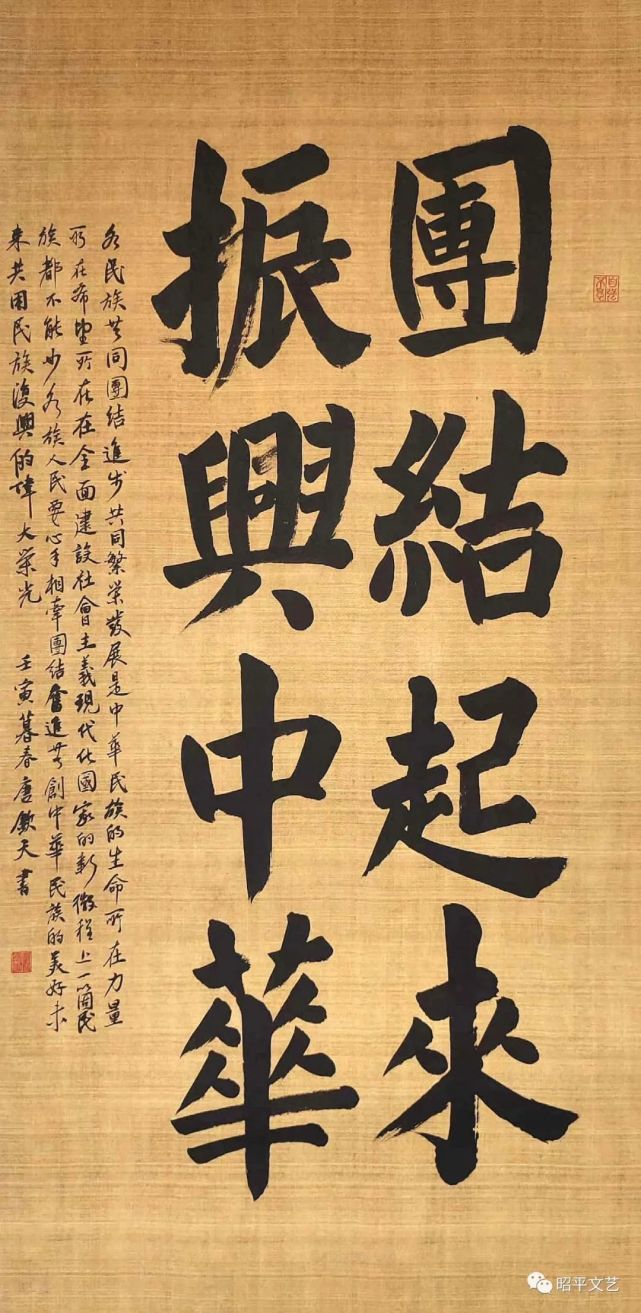 團結起來
振興中華
各民族共同團結進步共同繁荣發展是中華民族的生命所在力量
所在希望所在在全面建設社會主義現代化國家的新徵程上一箇民
族都不能少各族人民要心手相牽團結奮進共創中華民族的美好未
來共用民族復興的偉大荣光 壬寅暮春唐欽天書
昭平文艺